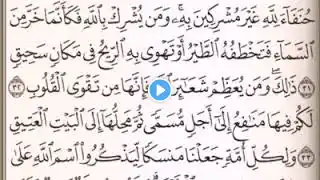 حُنَفَآءَ لِلَّهِ غَيۡرَ مُشۡرِكِينَ بِهِۦۚ وَمَن يُشۡرِكۡ بِٱللَّهِ فَكَأَنَّمَا خَرَّ مِنَ
ٱلسَّمَآءِ فَتَخۡطَفُهُ ٱلطَّيۡرُ أَوۡ تَهۡوِي بِهِ ٱلرِّيحُ فِي مَكَانٖ سَحِيقٖ
٣١ ذَٰلِكَۖ وَمَن يُعَظِّمۡ شَعَٰٓئِرَ فَإِنَّهَا مِن تَقۡوَى ٱلۡقُلُوبِ ٣٢
لَكُمۡ فِيهَا مَنَٰفِعُ إِلَىٰٓ أَجَلٖ مُّسَمّٗى ثُمَّ مَحِلُّهَآ إِلَى ٱلۡبَيۡتِ ٱلۡعَتِيقِ
٣٣ وَلِكُلِّ أُمَّةٖ جَعَلۡنَا مَنسَكٗا لِّيَذۡكُرُواْ ٱسۡمَ ٱللَّهِ عَلَىٰ